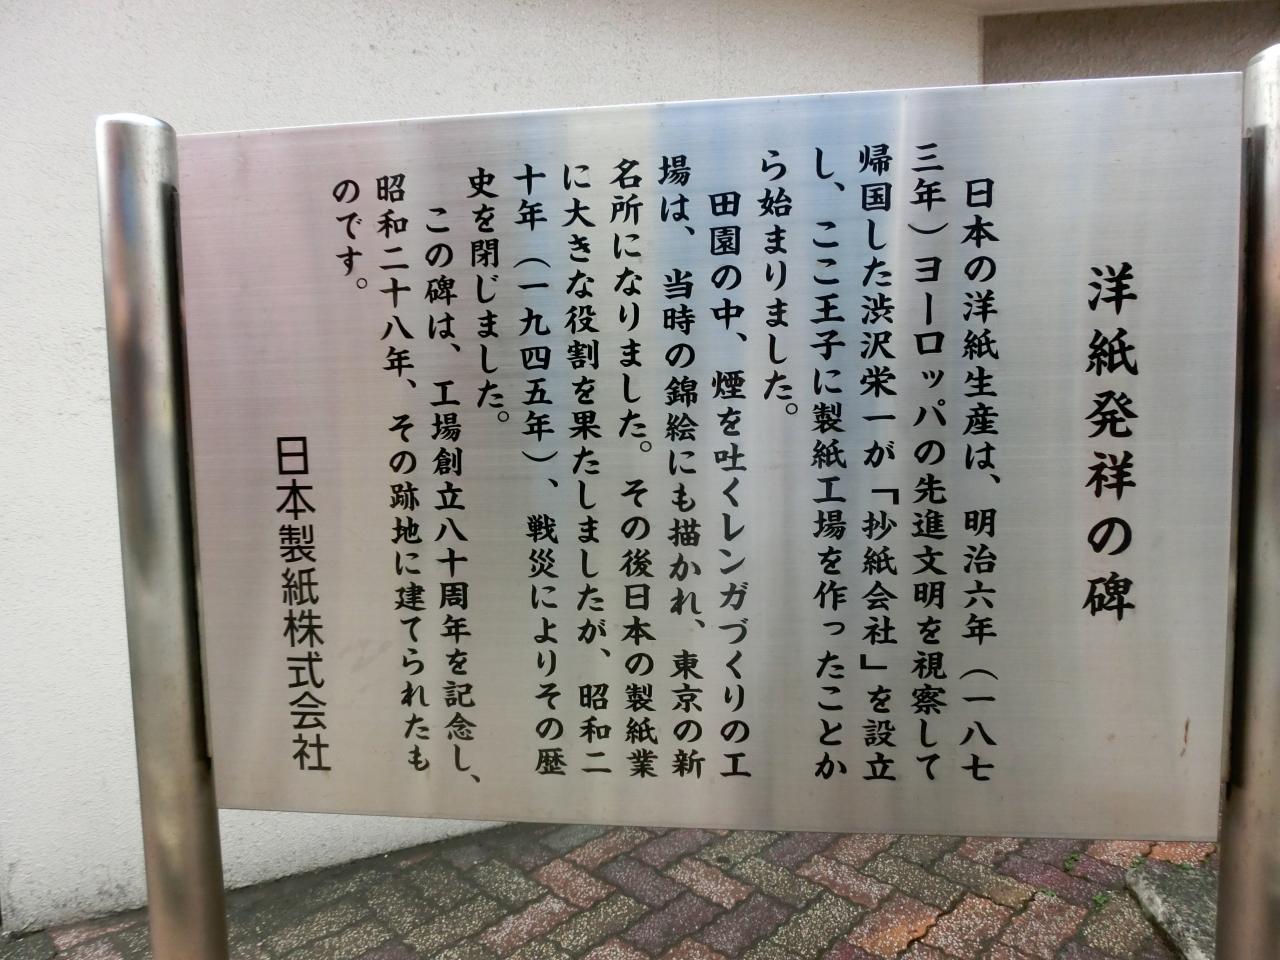 洋紙発祥の碑
日本の洋紙生産は、明治六年（一八七
三年）ヨーロッパの先進文明を視察して
帰国した渋沢栄一が「抄紙会社」を設立
し、ここ王子に製紙工場を作ったことか
ら始まりました。
田園の中、煙を吐くレンガづくりの工
場は、当時の錦絵にも描かれ、東京の新
名所になりました。その後日本の製紙業
に大きな役割を果たしましたが、昭和二
十年（一九四五年）、戦災によりその歴
史を閉じました。
この碑は、工場創立八十周年を記念し、
昭和二十八年、その跡地に建てられたも
のです。
日本製紙株式会社